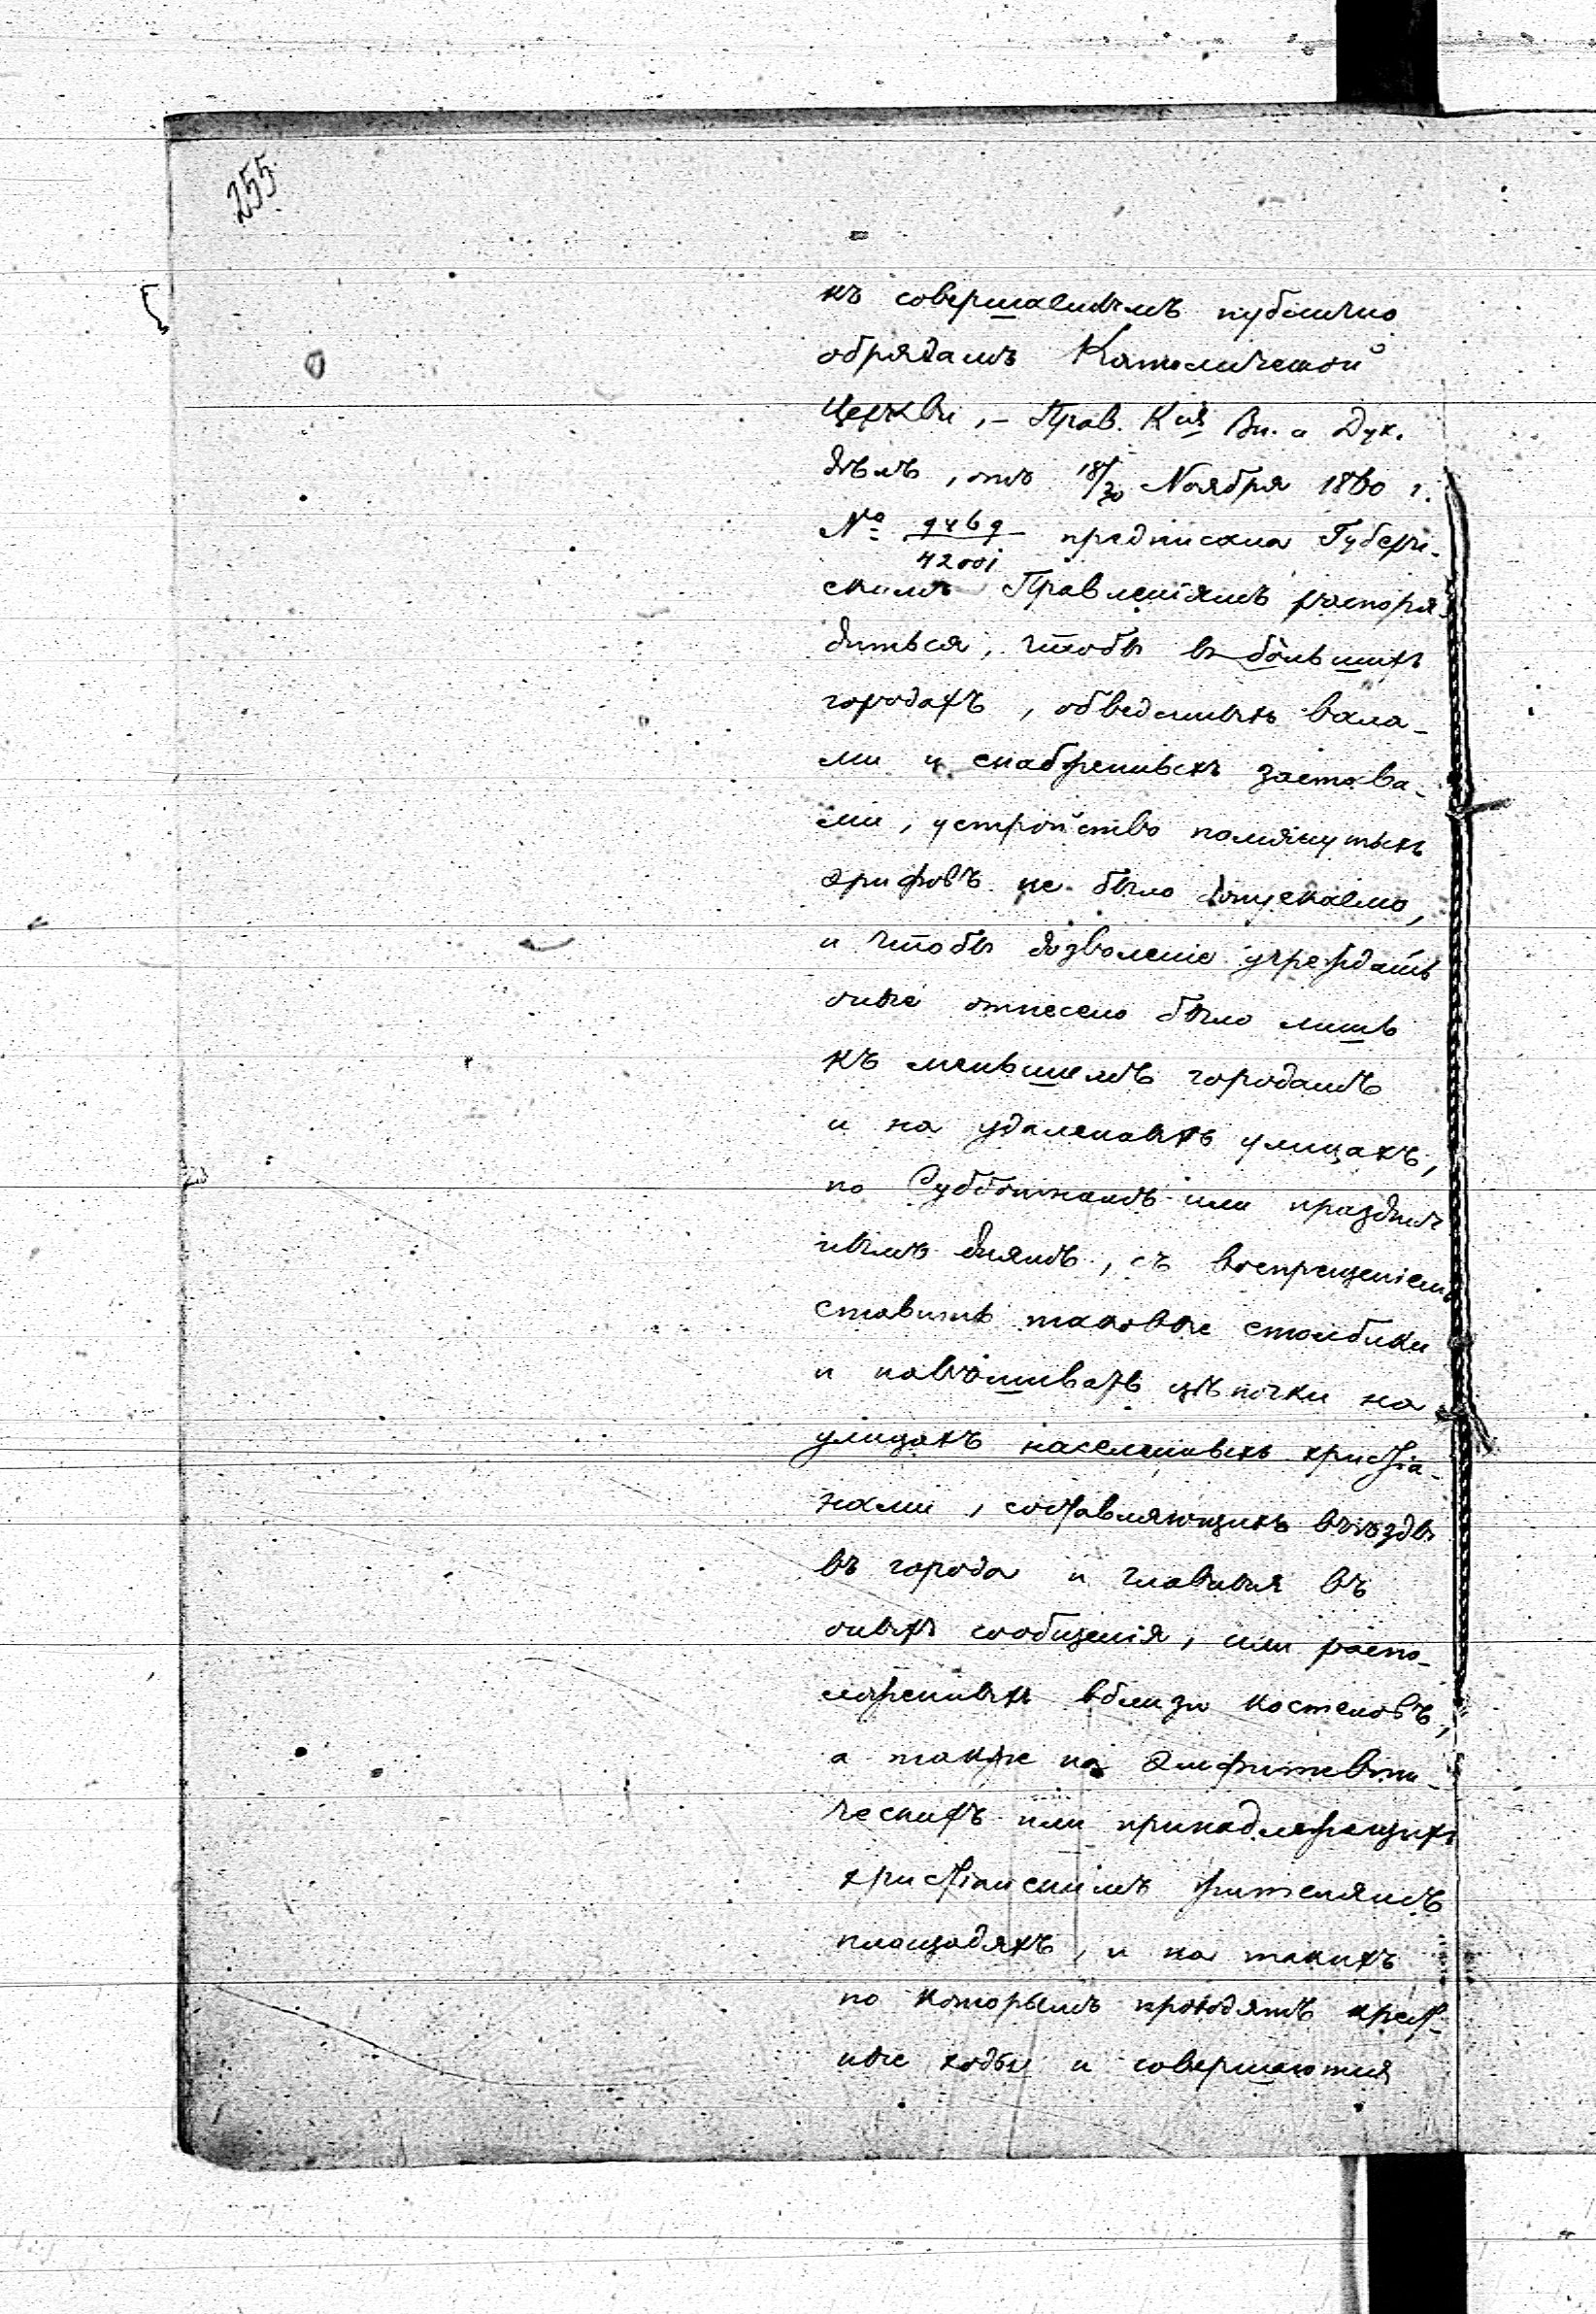 255
къ совершаемымъ публично
обрядамъ Католической
Церкви, – Прав. Кія Вн. и Дух.
дѣлъ, отъ 18/30 Ноября 1860 г.
№ 9469/42001 предписала Губерн-
скимъ Правленіямъ распоря-
диться, чтобы въ большихъ
городахъ, обведенныхъ вала-
ми и снабженныхъ застава-
ми, устройство помянутыхъ
эрифовъ не было допускаемо,
и чтобы дозволеніе учреждать
оные отнесено было лишь
къ меньшемъ городамъ
и на удаленныхъ улицахъ,
по Субботнимъ или празднич
нымъ днямъ, съ воспрещеніемъ
ставить таковые столбики
и навѣшивать цѣпочки на
улицахъ населенныхъ христіа-
нами, составляющихъ въѣзды
въ города и главныя въ
оныхъ сообщенія, или распо-
ложенныхъ вблизи костеловъ,
а также на Эмфитевти-
ческихъ или принадлежащихъ
христіанскимъ жителямъ
площадяхъ, и на такихъ
по которымъ проходятъ крест-
ные ходы и совершаются